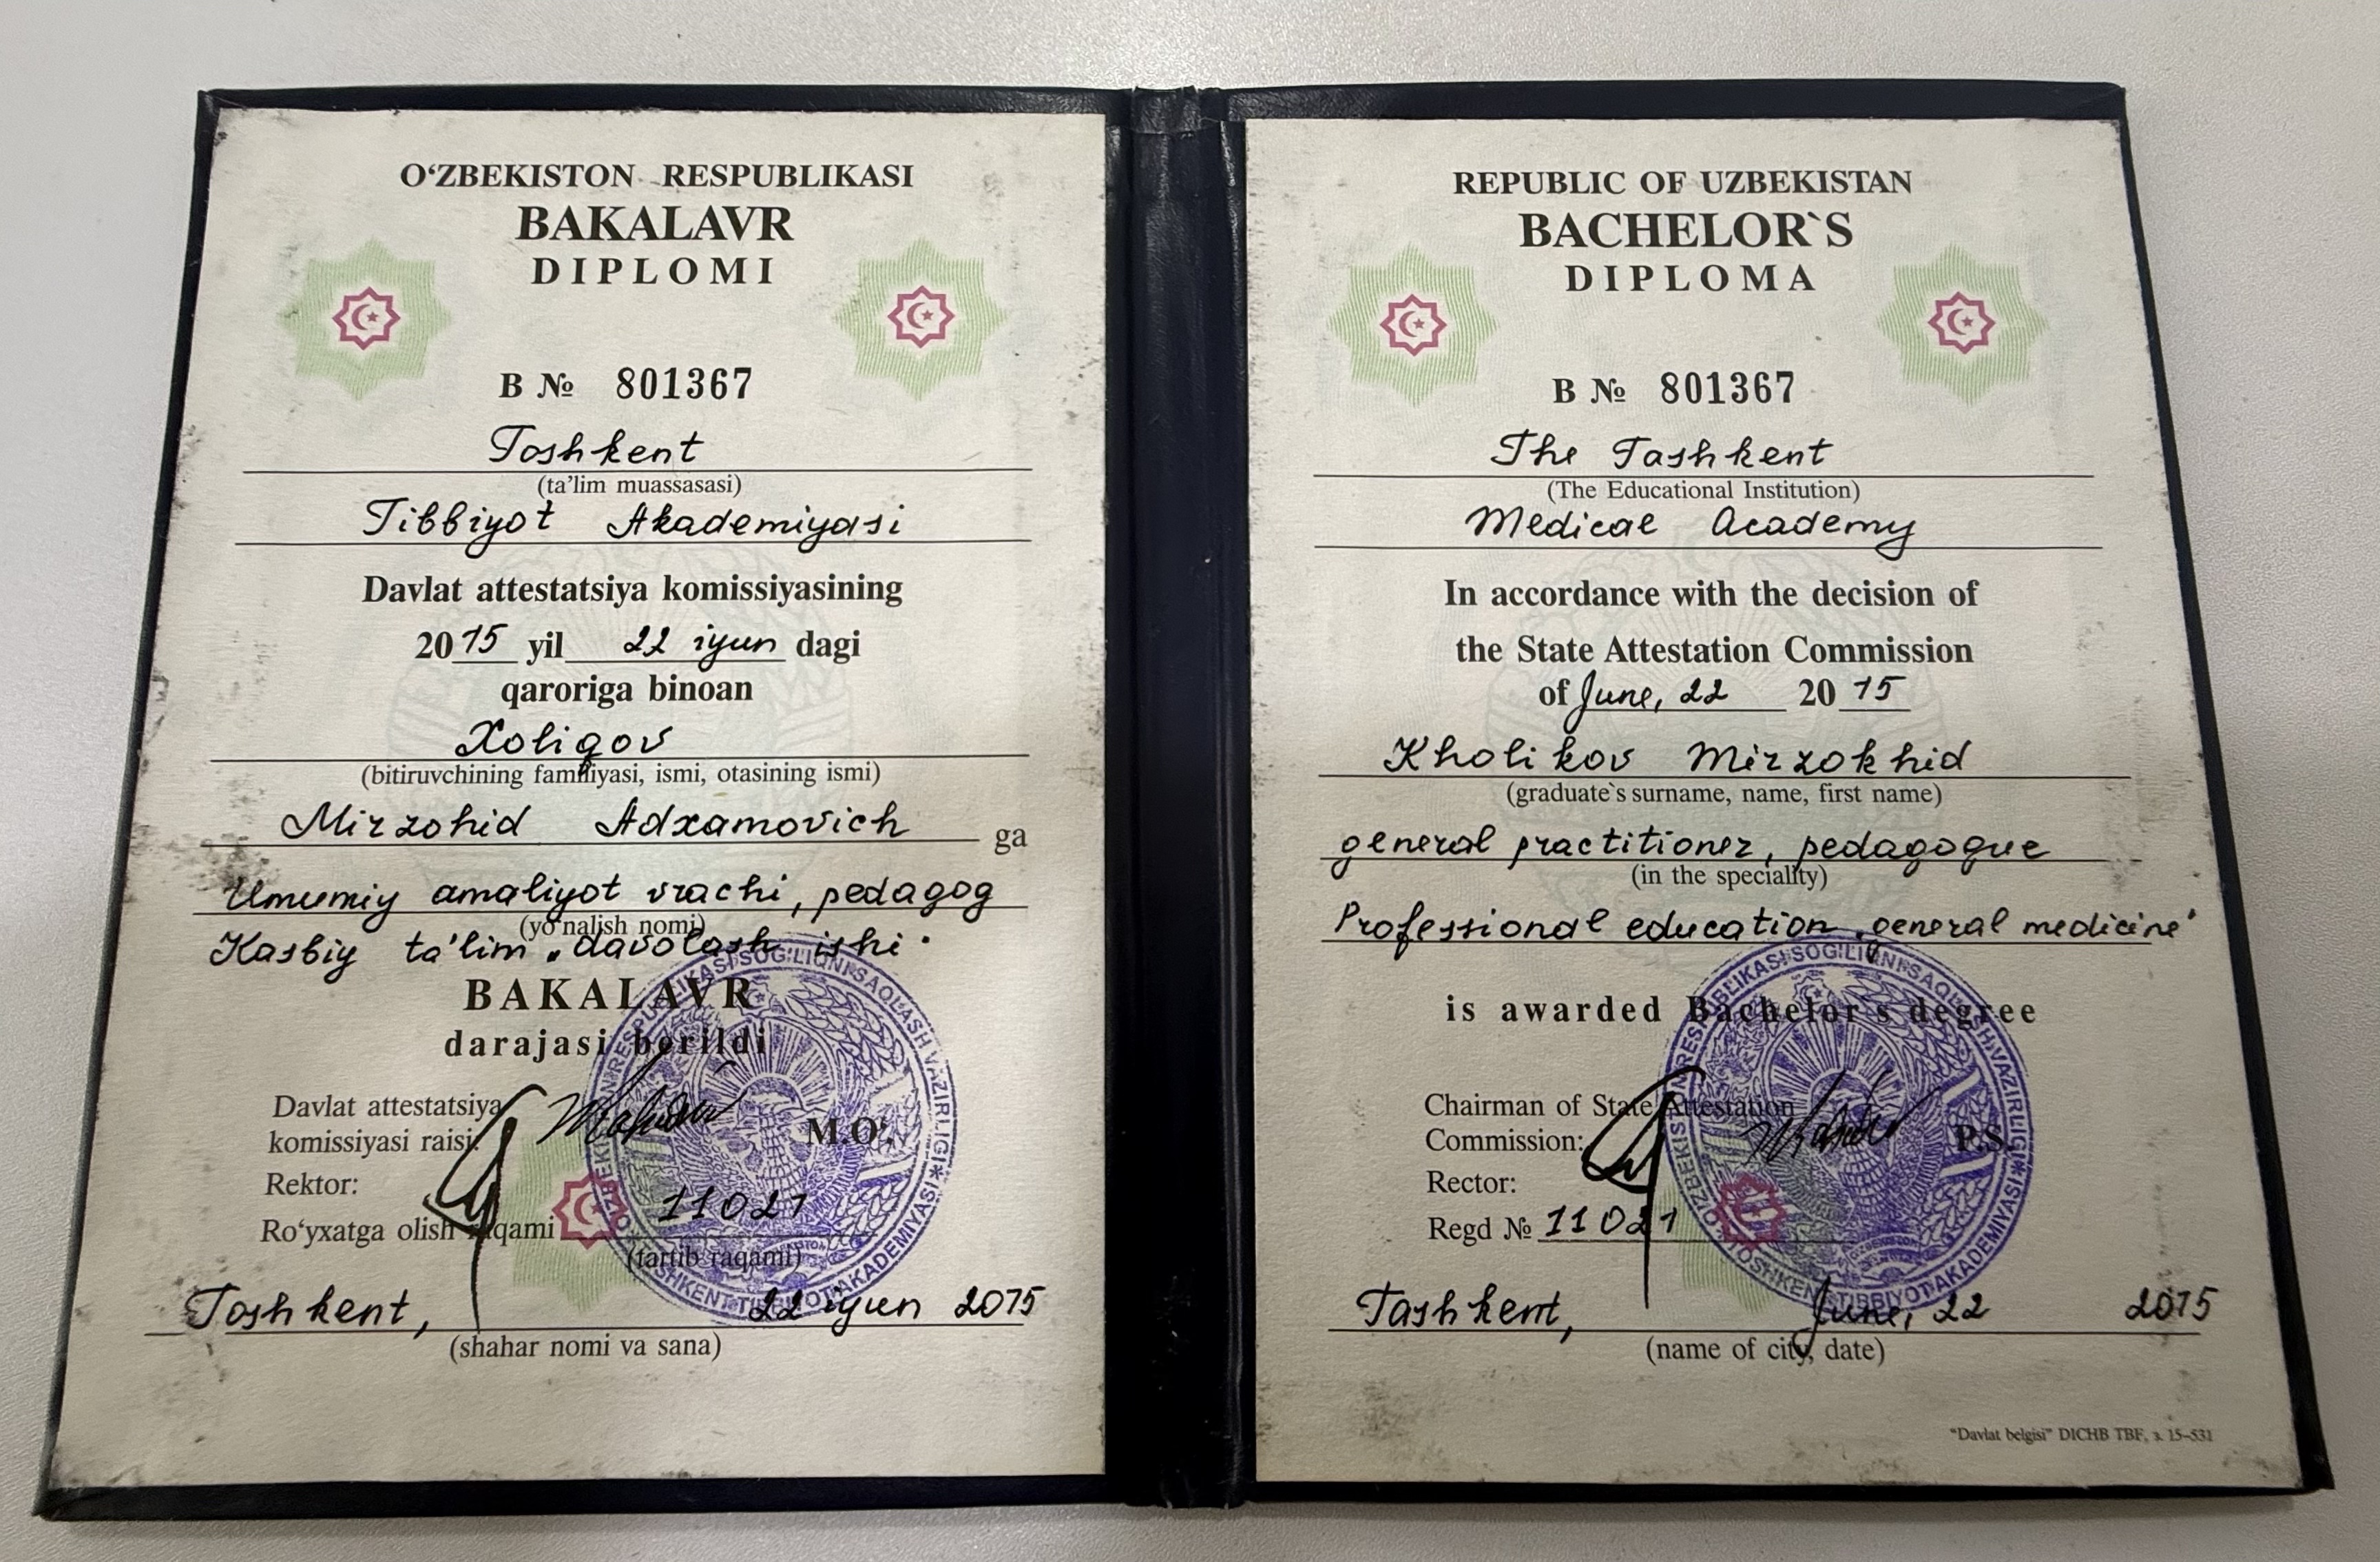 O‘ZBEKISTON RESPUBLIKASI
BAKALAVR
DIPLOMI
B № 801367
Toshkent
(ta’lim muassasasi)
Tibbiyot Akademiyasi
Davlat attestatsiya komissiyasining
2015 yil 22 iyun dagi
qaroriga binoan
Xoliqov
(bitiruvchining familiyasi, ismi, otasining ismi)
Mirzohid Adxamovich ga
Umumiy amaliyot vrachi, pedagog
(yo‘nalish nomi)
Kasbiy ta'lim „davolash ishi"
BAKALAVR
darajasi berildi
Davlat attestatsiya
komissiyasi raisi:
M.O‘.
Rektor:
Ro‘yxatga olish raqami 11021
(tartib raqami)
Toshkent, 22 iyun 2015
(shahar nomi va sana)
REPUBLIC OF UZBEKISTAN
BACHELOR`S
DIPLOMA
B № 801367
The Tashkent
(The Educational Institution)
Medical Academy
In accordance with the decision of
the State Attestation Commission
of June, 22 2015
Kholikov Mirzokhid
(graduate`s surname, name, first name)
general practitioner, pedagogue
(in the speciality)
Professional education „general medicine"
is awarded Bachelor`s degree
Chairman of State Attestation
Commission:
P.S.
Rector:
Regd № 11021
Tashkent, June, 22 2015
(name of city, date)
“Davlat belgisi” DICHB TBF, з. 15–531